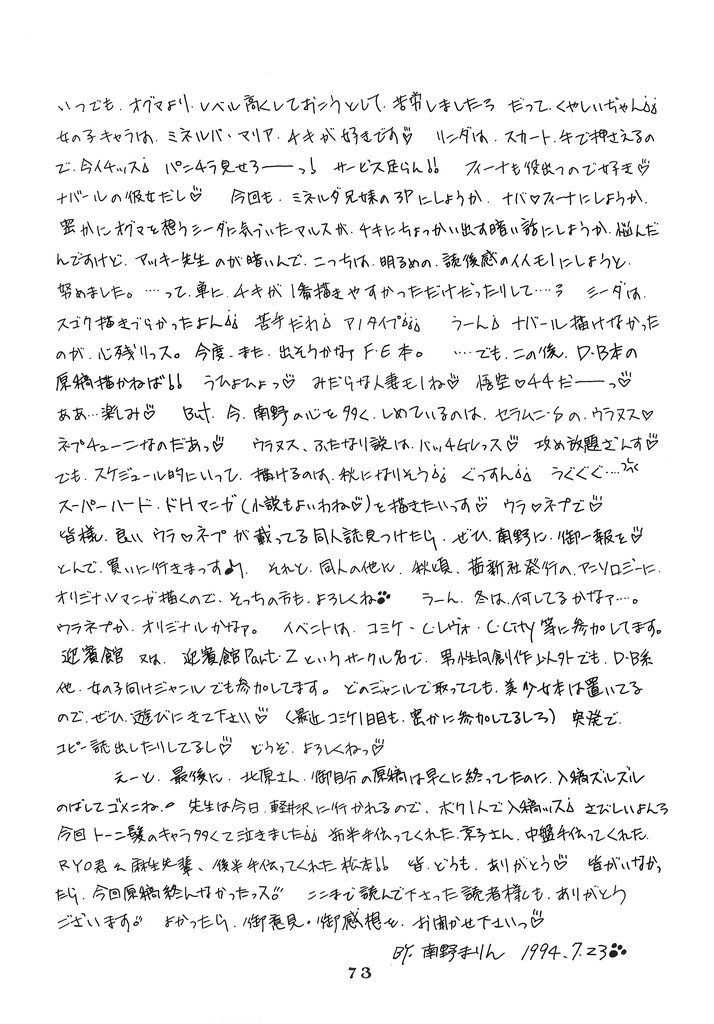 いつでも、オグマより、レベル高くしておこうとして、苦労しましたろ だって、くやしいぢゃん!!
女の子キャラは、ミネルバ・マリア・チキが好きです♡ リンダは、スカート、手で押さえるの
で、今イチッス! パンチラ見せろ――っ! サービス足らん!! フィーナも役立つので好き♡
ナバールの彼女だし♡ 今回も、ミネルバ兄妹の3Pにしようか、ナバ♡フィーナにしようか、
密かにオグマを想うシーダに気づいたマルスが、チキにちょっかい出す暗い話にしようか、悩んだ
んですけど、アッキー先生のが暗いんで、こっちは、明るめの、読後感のイイモノにしようと、
努めました。‥‥って、単に、チキが1番描きやすかっただけだったりして‥‥? シーダは、
スゴク描きづらかったよん!! 苦手だわ! アノタイプ!!! うーん! ナバール描けなかった
のが、心残りっス。今度、また、出そうかなァF・E本。 ‥‥でも、この後、D・B本の
原稿描かねば!! うひょひょっ♡ みだらな人妻モノね♡ 悟空♡チチだ――っ♡
ああ…楽しみ♡ But、今、南野の心を多く、しめているのは、セラムン・Sの、ウラヌス♡
ネプチューンなのだあっ♡ ウラヌス、ふたなり説は、バッチGレっス♡ 攻め放題ざんす♡
でも、スケジュール的にいって、描けるのは、秋になりそう!! ぐっすん!! うぐぐぐ‥‥
スーパーハード・ドHマンガ(小説もよいわね♡)を描きたいっす♡ ウラ♡ネプで♡
皆様、良いウラ♡ネプが載ってる同人誌見つけたら、ぜひ、南野に、御一報を♡
とんで、買いに行きまっす♪ それと、同人の他に、秋頃、茜新社発行の、アンソロジーに、
オリジナルマンガ描くので、そっちの方も、よろしくね うーん、冬は、何してるかなァ‥‥。
ウラネプか、オリジナルかなァ。 イベントは、コミケ・C・レヴォ・C・City等に参加してます。
迎賓館 又は、迎賓館Part・2というサークル名で、男性向創作以外でも、D・B系
他、女の子向けジャンルでも参加してます。どのジャンルで取ってても、美少女本は置いてる
ので、ぜひ、遊びにきて下さい♡ (最近コミケ1日目も、密かに参加してるしろ) 突発で、
コピー誌出したりしてるし♡ どうぞ、よろしくねっ♡
えーと、最後に、北原さん、御自分の原稿は早くに終ってたのに、入稿ズルズル
のばしてゴメンね! 先生は今日、軽井沢に行かれるので、ボク1人で入稿ッス! さびしいよんろ
今回トーン髪のキャラ多くて泣きました!! 前半手伝ってくれた、京子さん、中盤手伝ってくれた、
RYO君&麻生先輩、後半手伝ってくれた松本!! 皆、どうも、ありがとう♡ 皆がいなかっ
たら、今回原稿終んなかったっス!! ここまで読んで下さった読者様も、ありがとう
ございます!! よかったら、御意見・御感想を、お聞かせ下さいっ♡
BY. 南野まりん 1994.7.23
73